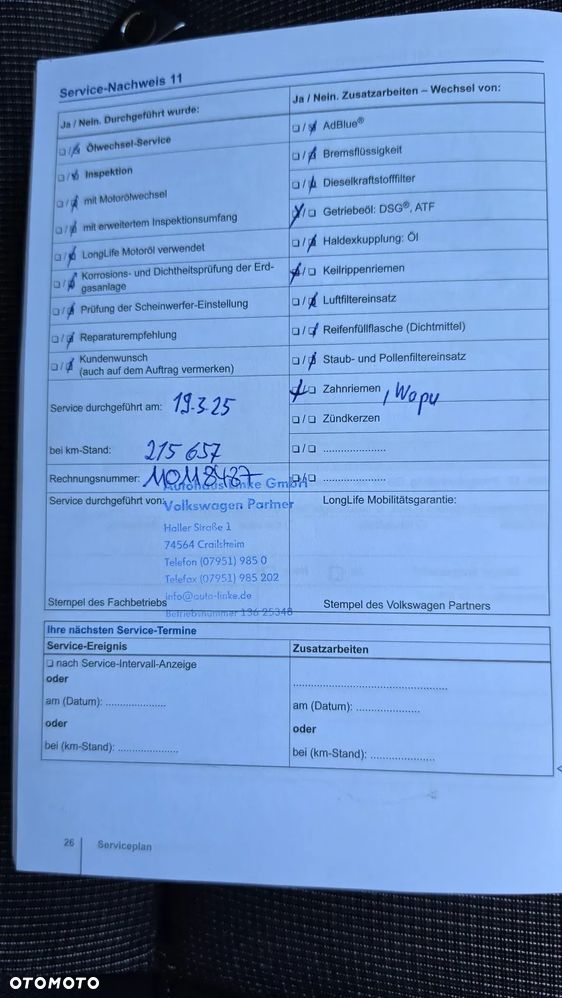 Service-Nachweis 11
Ja / Nein. Durchgeführt wurde:
❏ / ❏ Ölwechsel-Service
❏ / ❏ Inspektion
❏ / ❏ mit Motorölwechsel
❏ / ❏ mit erweitertem Inspektionsumfang
❏ / ❏ LongLife Motoröl verwendet
❏ / ❏ Korrosions- und Dichtheitsprüfung der Erd-
gasanlage
❏ / ❏ Prüfung der Scheinwerfer-Einstellung
❏ / ❏ Reparaturempfehlung
❏ / ❏ Kundenwunsch
(auch auf dem Auftrag vermerken)
Service durchgeführt am: 19.3.25
bei km-Stand: 215 657
Rechnungsnummer:
Service durchgeführt von:
Ja / Nein. Zusatzarbeiten – Wechsel von:
❏ / ❏ AdBlue®
❏ / ❏ Bremsflüssigkeit
❏ / ❏ Dieselkraftstofffilter
❏ / ❏ Getriebeöl: DSG®, ATF
❏ / ❏ Haldexkupplung: Öl
❏ / ❏ Keilrippenriemen
❏ / ❏ Luftfiltereinsatz
❏ / ❏ Reifenfüllflasche (Dichtmittel)
❏ / ❏ Staub- und Pollenfiltereinsatz
❏ / ❏ Zahnriemen , Wapu
❏ / ❏ Zündkerzen
❏ / ❏ .....................
❏ / ❏ .....................
LongLife Mobilitätsgarantie:
Autohaus Linke GmbH
Volkswagen Partner
Haller Straße 1
74564 Crailsheim
Telefon (07951) 985 0
Telefax (07951) 985 202
info@auto-linke.de
Betriebsnummer 136 25348
Stempel des Fachbetriebs
Stempel des Volkswagen Partners
Ihre nächsten Service-Termine
Service-Ereignis
❏ nach Service-Intervall-Anzeige
oder
am (Datum): .....................
oder
bei (km-Stand): .....................
Zusatzarbeiten
.....................................................
am (Datum): .....................
oder
bei (km-Stand): .....................
26 Serviceplan
OTOMOTO